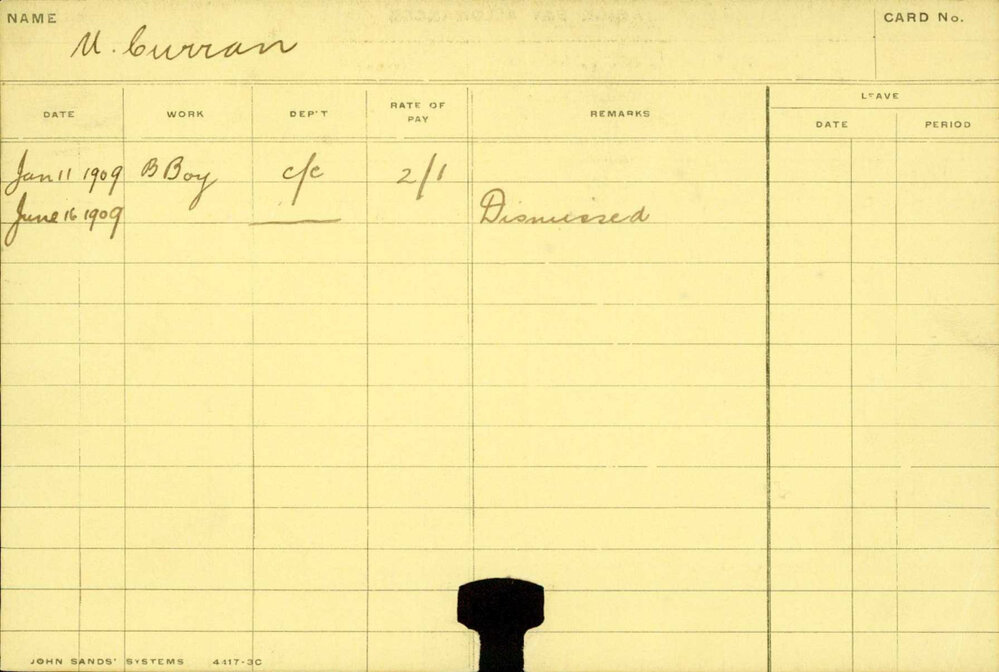 NAME
M. Curran
CARD No.
DATE WORK DEP'T RATE OF PAY REMARKS
LEAVE
DATE PERIOD
Jan 11 1909 B Boy c/c 2/1
June 16 1909 Dismissed
JOHN SANDS' SYSTEMS 4417-3C